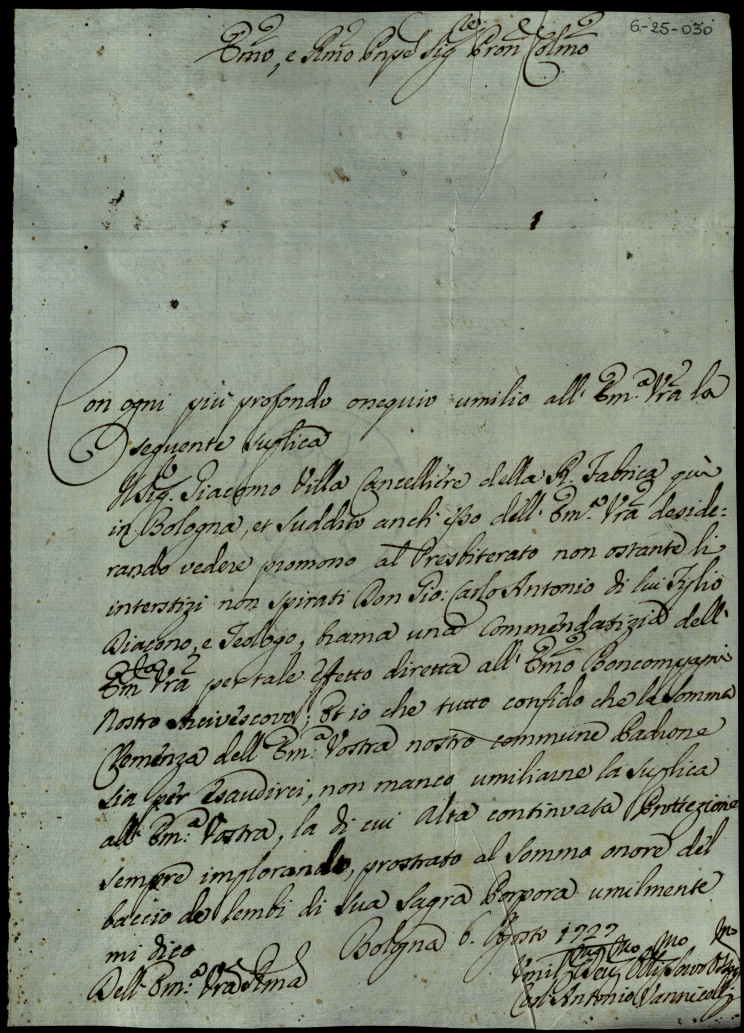 6-25-030
Emo, e Rmo Pnpe Sig.re Pron Colmo
Con ogni più profondo ossequio umilio all' Em.a Vra la
seguente suplica
Il Sig. Giacomo Villa Cancelliere della R. Fabrica qui
in Bologna, et Suddito anch' esso dell' Em.a Vra deside=
rando vedere promosso al Presbiterato non ostante li
interstizi non spirati Don Gio: Carlo Antonio di lui Figlio
Diacono, e Teologo, brama una Commendatizia dell'
Em.a Vra per tale effetto diretta all' Emo Boncompagni
Nostro Arcivescovo; Et io che tutto confido che la somma
Clemenza dell' Em.a Vostra nostro commune Padrone
sia per esaudirci, non manco umiliarne la suplica
all' Em.a Vostra, la di cui Alta continuata Prottezione
sempre implorando, prostrato al sommo onore del
baccio de lembi di sua Sagra Porpora umilmente
mi dico Bologna 6. Agosto 1727
Dell' Em.a Vra Rma Umil.mo Dev.mo Oblig.mo Servo
Carl' Antonio Vannicelli